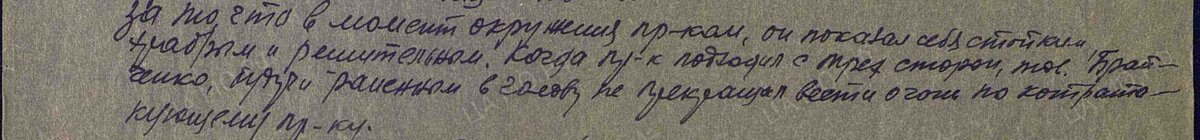 за то, что в момент окружения пр-ком, он показал себя стойким,
храбрым и решительным. Когда пр-к подходил с трех сторон, тов. Брай-
ченко, будучи раненным в голову не прекращал вести огонь по контрата-
кующему пр-ку.